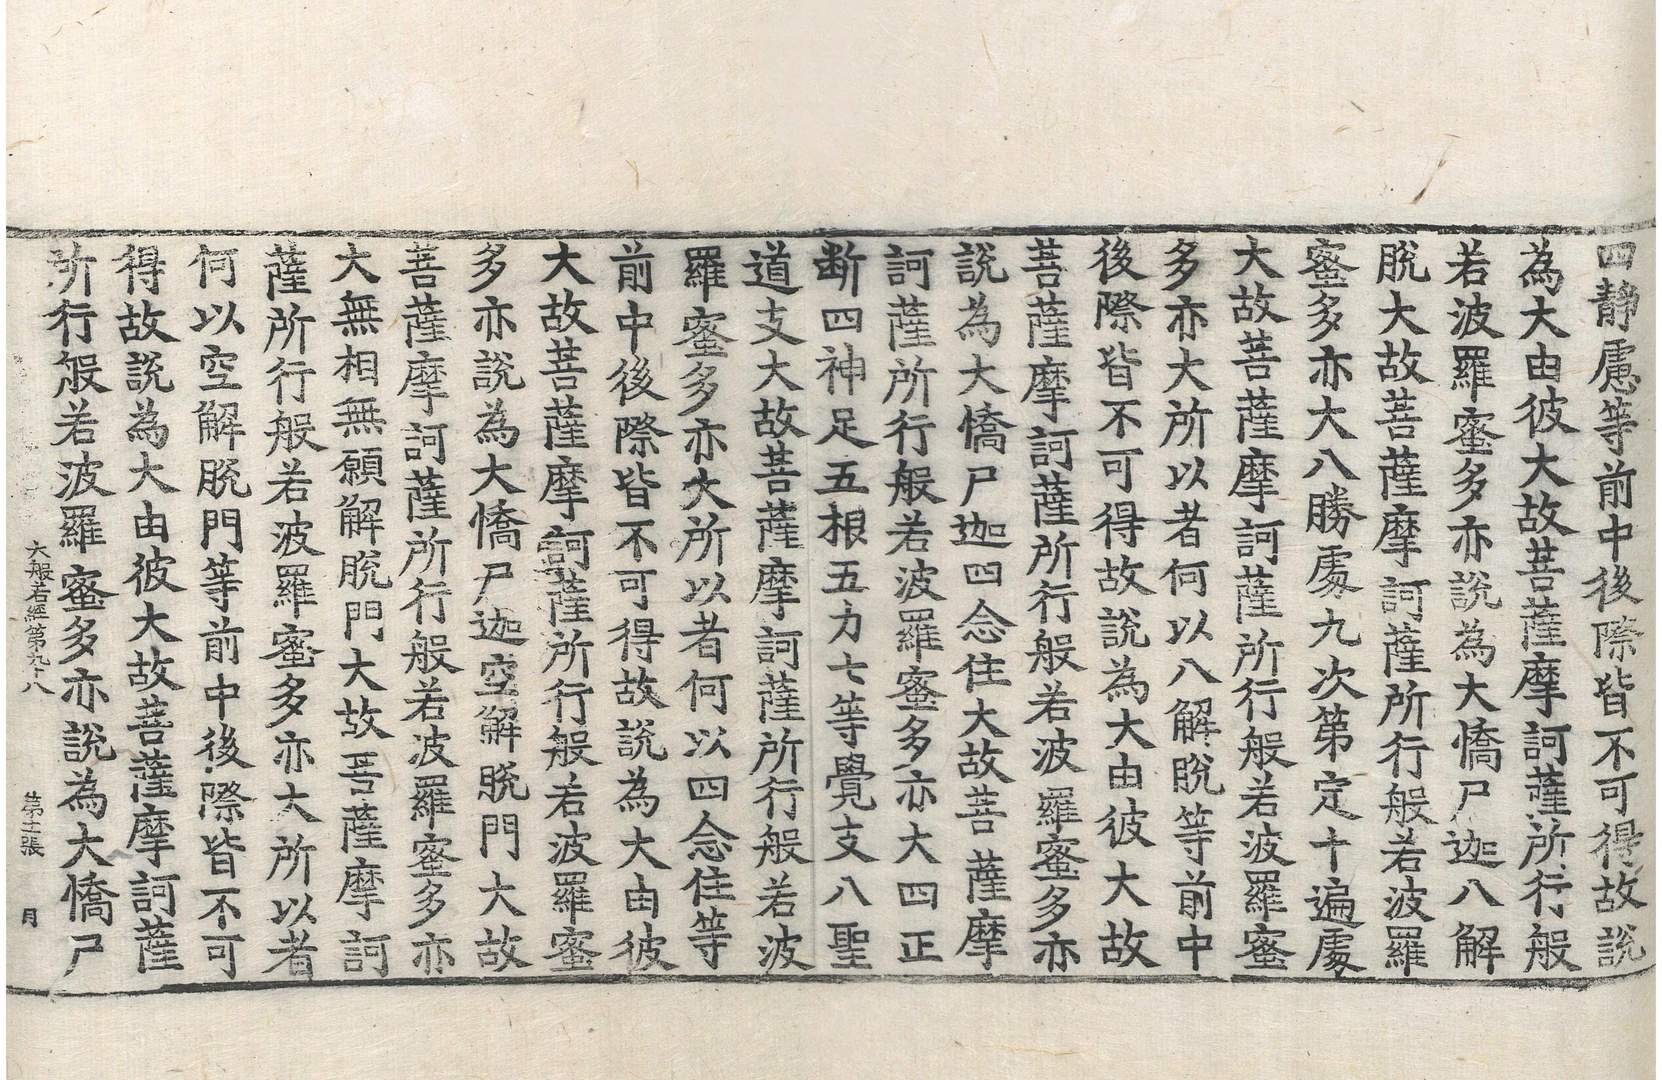 四静慮等前中後際皆不可得故説
為大由彼大故菩薩摩訶薩所行般
若波羅蜜多亦説為大憍尸迦八解
脫大故菩薩摩訶薩所行般若波羅
蜜多亦大八勝處九次第定十遍處
大故菩薩摩訶薩所行般若波羅蜜
多亦大所以者何以八解脫等前中
後際皆不可得故説為大由彼大故
菩薩摩訶薩所行般若波羅蜜多亦
説為大憍尸迦四念住大故菩薩摩
訶薩所行般若波羅蜜多亦大四正
断四神足五根五力七等覺支八聖
道支大故菩薩摩訶薩所行般若波
羅蜜多亦大所以者何以四念住等
前中後際皆不可得故説為大由彼
大故菩薩摩訶薩所行般若波羅蜜
多亦説為大憍尸迦空解脫門大故
菩薩摩訶薩所行般若波羅蜜多亦
大無相無願解脫門大故菩薩摩訶
薩所行般若波羅蜜多亦大所以者
何以空解脫門等前中後際皆不可
得故説為大由彼大故菩薩摩訶薩
所行般若波羅蜜多亦説為大憍尸
大般若經第九十八 第十二張 月